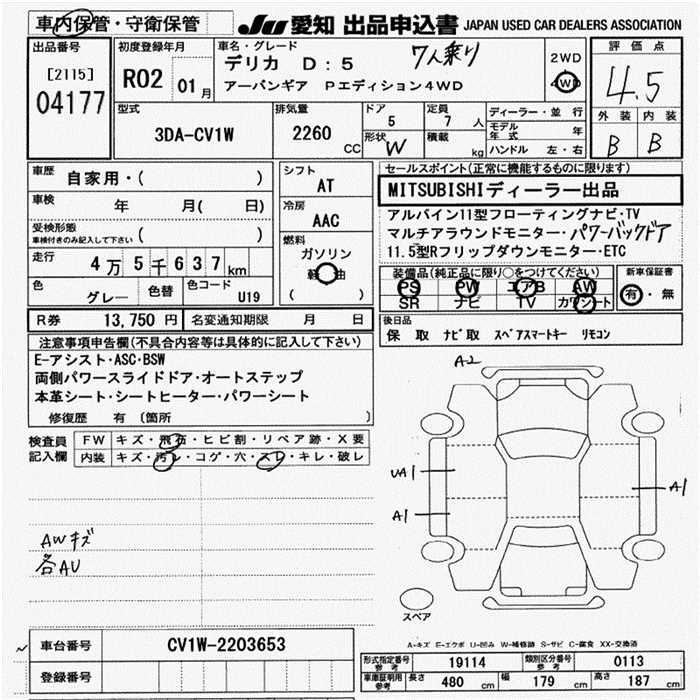 車内保管・守衛保管
JU 愛知 出品申込書 JAPAN USED CAR DEALERS ASSOCIATION
出品番号
[2115]
04177
初度登録年月
R02 01月
車名・グレード
デリカ D:5 7人乗り
アーバンギア Pエディション4WD
2WD
4WD
評価点
4.5
外装 内装
B B
型式
3DA-CV1W
排気量
2260 CC
ドア
5
形状 W
定員
7 人
積載 kg
ディーラー・並行
モデル年式 年
ハンドル 左・右
車歴
自家用・( )
車検
年 月( 日)
受検形態
車検付きのみ記入して下さい ( )
走行
4万5千637km
色
グレー 色替
色コード
U19
シフト
AT
冷房
AAC
燃料
ガソリン
軽油
( )
セールスポイント(正常に機能するものに限ります)
MITSUBISHIディーラー出品
アルパイン11型フローティングナビ・TV
マルチアラウンドモニター・パワーバックドア
11.5型Rフリップダウンモニター・ETC
装備品(純正品に限り○をつけてください)
PS PW エアB AW
SR ナビ TV カワシート
新車保証書
有・無
R券 13,750円 名変通知期限 月 日
後日品
保 取 ナビ取 スペアスマートキー リモコン
注意事項申告欄(不具合内容等は具体的に記入して下さい)
E-アシスト・ASC・BSW
両側パワースライドドア・オートステップ
本革シート・シートヒーター・パワーシート
修復歴 有 〔箇所 〕
検査員記入欄
FW キズ・飛石・ヒビ割・リペア跡・X要
内装 キズ・汚レ・コゲ・穴・スレ・キレ・破レ
AWキズ
各AU
A2
UA1
A1
A1
スペア
A-キズ E-エクボ U-凹み W-補修跡 S-サビ C-腐食 XX-交換済
車台番号 CV1W-2203653
登録番号
形式指定番号 参考 19114 類別区分番号 参考 0113
車庫証明用 参考 長さ 480 cm 幅 179 cm 高さ 187 cm